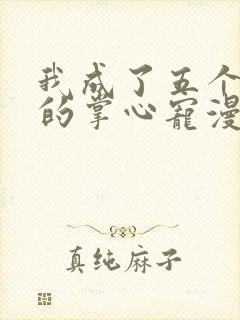 我成了五个
的掌心宠漫
真纯麻子